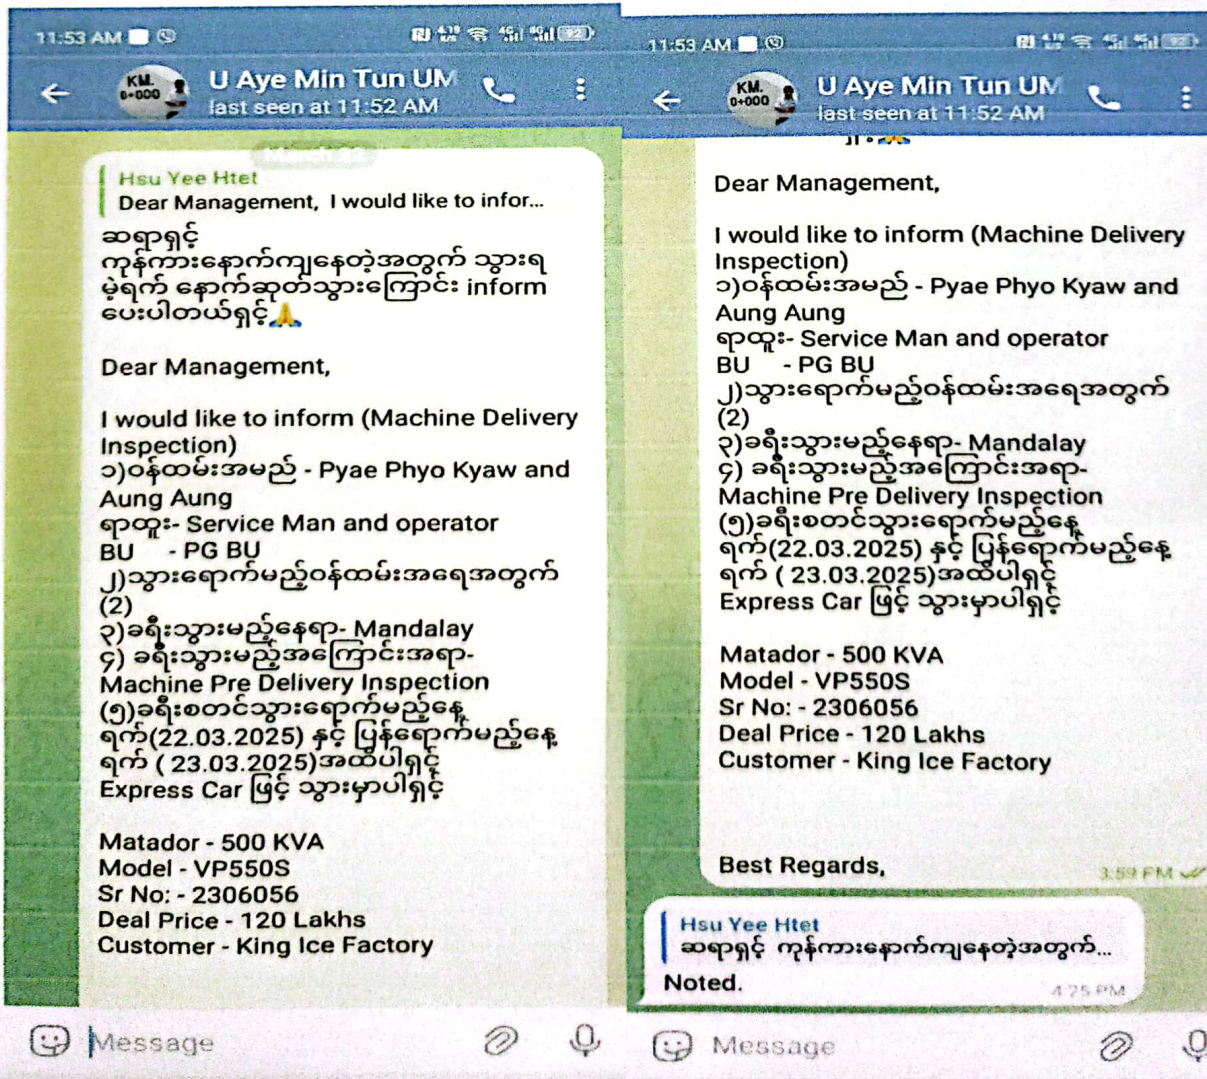 11:53 AM
4.19 K/s 4G 4G 92
KM.
0+000
U Aye Min Tun UM
last seen at 11:52 AM
March 22
Hsu Yee Htet
Dear Management, I would like to infor...
ဆရာရှင့်
ကုန်ကားနောက်ကျနေတဲ့အတွက် သွားရ
မဲ့ရက် နောက်ဆုတ်သွားကြောင်း inform
ပေးပါတယ်ရှင့်🙏
Dear Management,
I would like to inform (Machine Delivery
Inspection)
၁)ဝန်ထမ်းအမည် - Pyae Phyo Kyaw and
Aung Aung
ရာထူး- Service Man and operator
BU - PG BU
၂)သွားရောက်မည့်ဝန်ထမ်းအရေအတွက်
(2)
၃)ခရီးသွားမည့်နေရာ- Mandalay
၄) ခရီးသွားမည့်အကြောင်းအရာ-
Machine Pre Delivery Inspection
(၅)ခရီးစတင်သွားရောက်မည့်နေ့
ရက်(22.03.2025) နှင့် ပြန်ရောက်မည့်နေ့
ရက် ( 23.03.2025)အထိပါရှင့်
Express Car ဖြင့် သွားမှာပါရှင့်
Matador - 500 KVA
Model - VP550S
Sr No: - 2306056
Deal Price - 120 Lakhs
Customer - King Ice Factory
Message
11:53 AM
4.19 K/s 4G 4G 92
KM.
0+000
U Aye Min Tun UM
last seen at 11:52 AM
Dear Management,
I would like to inform (Machine Delivery
Inspection)
၁)ဝန်ထမ်းအမည် - Pyae Phyo Kyaw and
Aung Aung
ရာထူး- Service Man and operator
BU - PG BU
၂)သွားရောက်မည့်ဝန်ထမ်းအရေအတွက်
(2)
၃)ခရီးသွားမည့်နေရာ- Mandalay
၄) ခရီးသွားမည့်အကြောင်းအရာ-
Machine Pre Delivery Inspection
(၅)ခရီးစတင်သွားရောက်မည့်နေ့
ရက်(22.03.2025) နှင့် ပြန်ရောက်မည့်နေ့
ရက် ( 23.03.2025)အထိပါရှင့်
Express Car ဖြင့် သွားမှာပါရှင့်
Matador - 500 KVA
Model - VP550S
Sr No: - 2306056
Deal Price - 120 Lakhs
Customer - King Ice Factory
Best Regards,
3:59 PM
Hsu Yee Htet
ဆရာရှင့် ကုန်ကားနောက်ကျနေတဲ့အတွက်...
Noted.
4:25 PM
Message